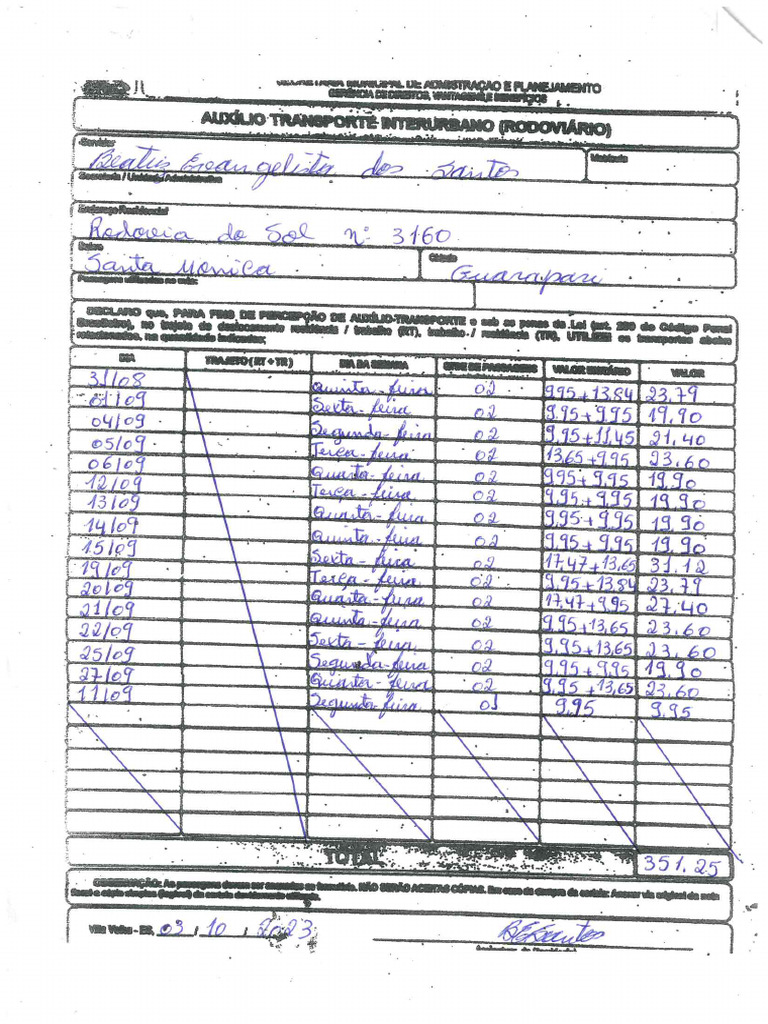 SECRETARIA MUNICIPAL DE ADMISTRAÇÃO E PLANEJAMENTO
GERÊNCIA DE DIREITOS, VANTAGENS E BENEFÍCIOS
AUXÍLIO TRANSPORTE INTERURBANO (RODOVIÁRIO)
Servidor Matrícula
Beatriz Evangelista dos Santos
Secretaria / Unidade Administrativa
Endereço Residencial
Rodovia do Sol nº 3160
Bairro Cidade
Santa Monica Guarapari
Passagens utilizadas no mês:
DECLARO que, PARA FINS DE PERCEPÇÃO DE AUXÍLIO-TRANSPORTE e sob as penas da Lei (art. 299 do Código Penal
Brasileiro), no trajeto de deslocamento residência / trabalho (RT), trabalho / residência (TR), UTILIZEI os transportes abaixo
relacionados, na quantidade indicados:
DIA TRAJETO (RT + TR) DIA DA SEMANA QTDE DE PASSAGENS VALOR UNITÁRIO VALOR
31/08 Quinta-feira 02 9,95+13,84 23,79
01/09 Sexta-feira 02 9,95+9,95 19,90
04/09 Segunda-feira 02 9,95+11,45 21,40
05/09 Terça-feira 02 13,65+9,95 23,60
06/09 Quarta-feira 02 9,95+9,95 19,90
12/09 Terça-feira 02 9,95+9,95 19,90
13/09 Quarta-feira 02 9,95+9,95 19,90
14/09 Quinta-feira 02 9,95+9,95 19,90
15/09 Sexta-feira 02 17,47+13,65 31,12
19/09 Terça-feira 02 9,95+13,84 23,79
20/09 Quarta-feira 02 17,47+9,95 27,40
21/09 Quinta-feira 02 9,95+13,65 23,60
22/09 Sexta-feira 02 9,95+13,65 23,60
25/09 Segunda-feira 02 9,95+9,95 19,90
27/09 Quarta-feira 02 9,95+13,65 23,60
11/09 Segunda-feira 01 9,95 9,95
TOTAL 351,25
OBSERVAÇÃO: As passagens devem ser anexadas ao formulário. NÃO SERÃO ACEITAS CÓPIAS. Em caso de compra de cartela: Anexar via original da nota
fiscal e cópia simples (legível) da cartela devidamente utilização.
Vila Velha - ES, 03 / 10 / 2023 BESantos